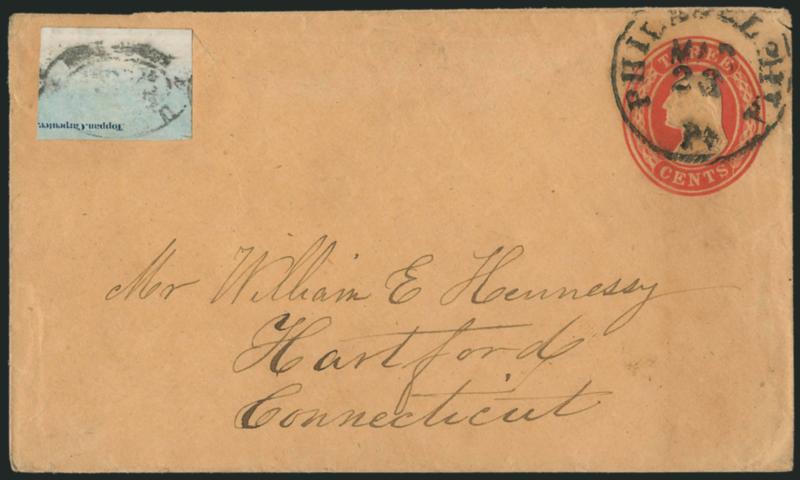 PHILADELPHIA
MAR
23
Pa
THREE
CENTS
Toppan, Carpenter,
Mr William E Hennessy
Hartford
Connecticut